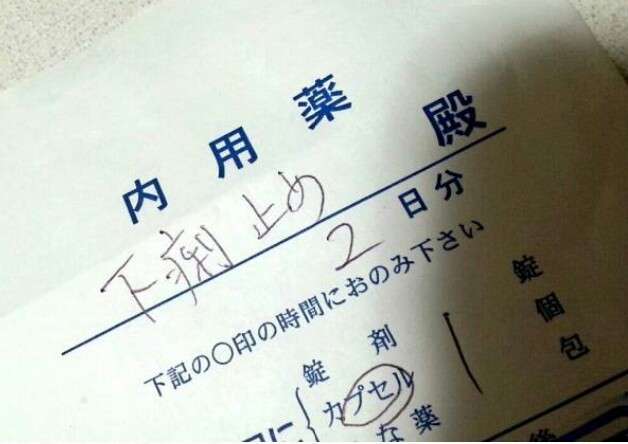 内用薬
下痢止め 殿
2日分
下記の〇印の時間におのみ下さい
錠剤 錠
カプセル 個
な薬 包